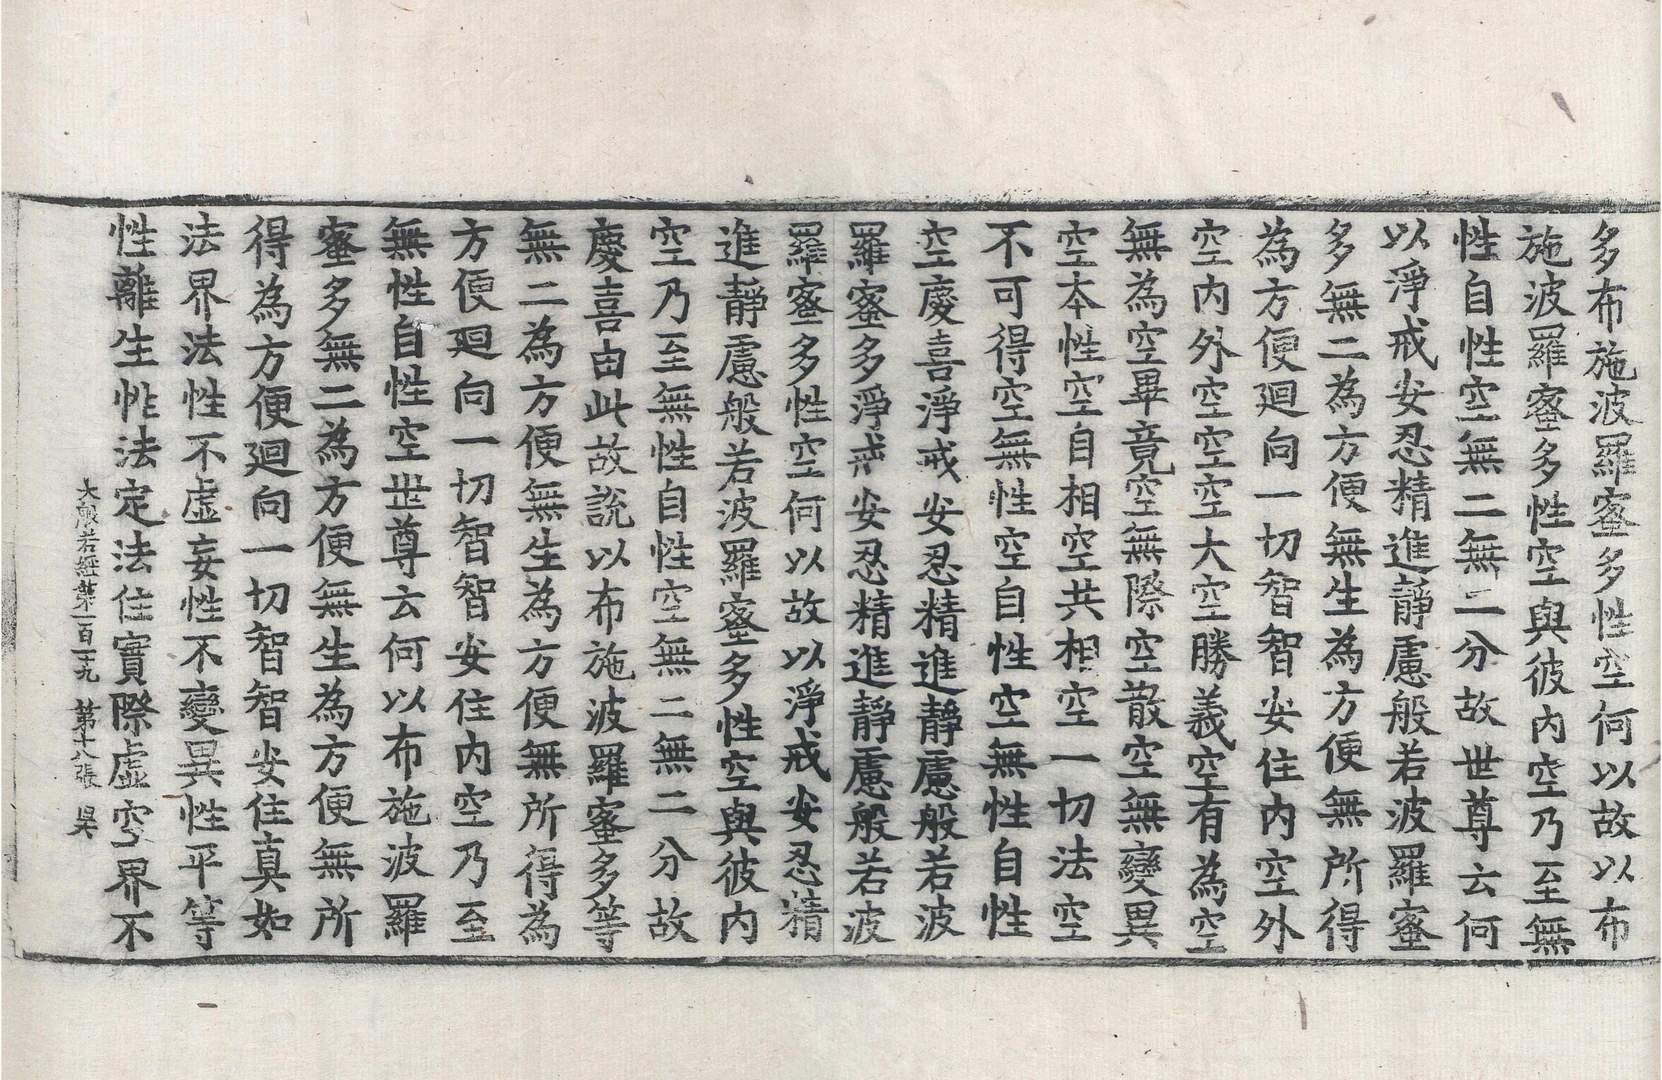 多布施波羅蜜多性空何以故以布
施波羅蜜多性空與彼內空乃至無
性自性空無二無二分故世尊云何
以淨戒安忍精進靜慮般若波羅蜜
多無二為方便無生為方便無所得
為方便迴向一切智智安住內空外
空內外空空空大空勝義空有為空
無為空畢竟空無際空散空無變異
空本性空自相空共相空一切法空
不可得空無性空自性空無性自性
空慶喜淨戒安忍精進靜慮般若波
羅蜜多淨戒安忍精進靜慮般若波
羅蜜多性空何以故以淨戒安忍精
進靜慮般若波羅蜜多性空與彼內
空乃至無性自性空無二無二分故
慶喜由此故說以布施波羅蜜多等
無二為方便無生為方便無所得為
方便迴向一切智智安住內空乃至
無性自性空世尊云何以布施波羅
蜜多無二為方便無生為方便無所
得為方便迴向一切智智安住真如
法界法性不虛妄性不變異性平等
性離生性法定法住實際虛空界不
大般若經第一百一十九 第十八張 昃